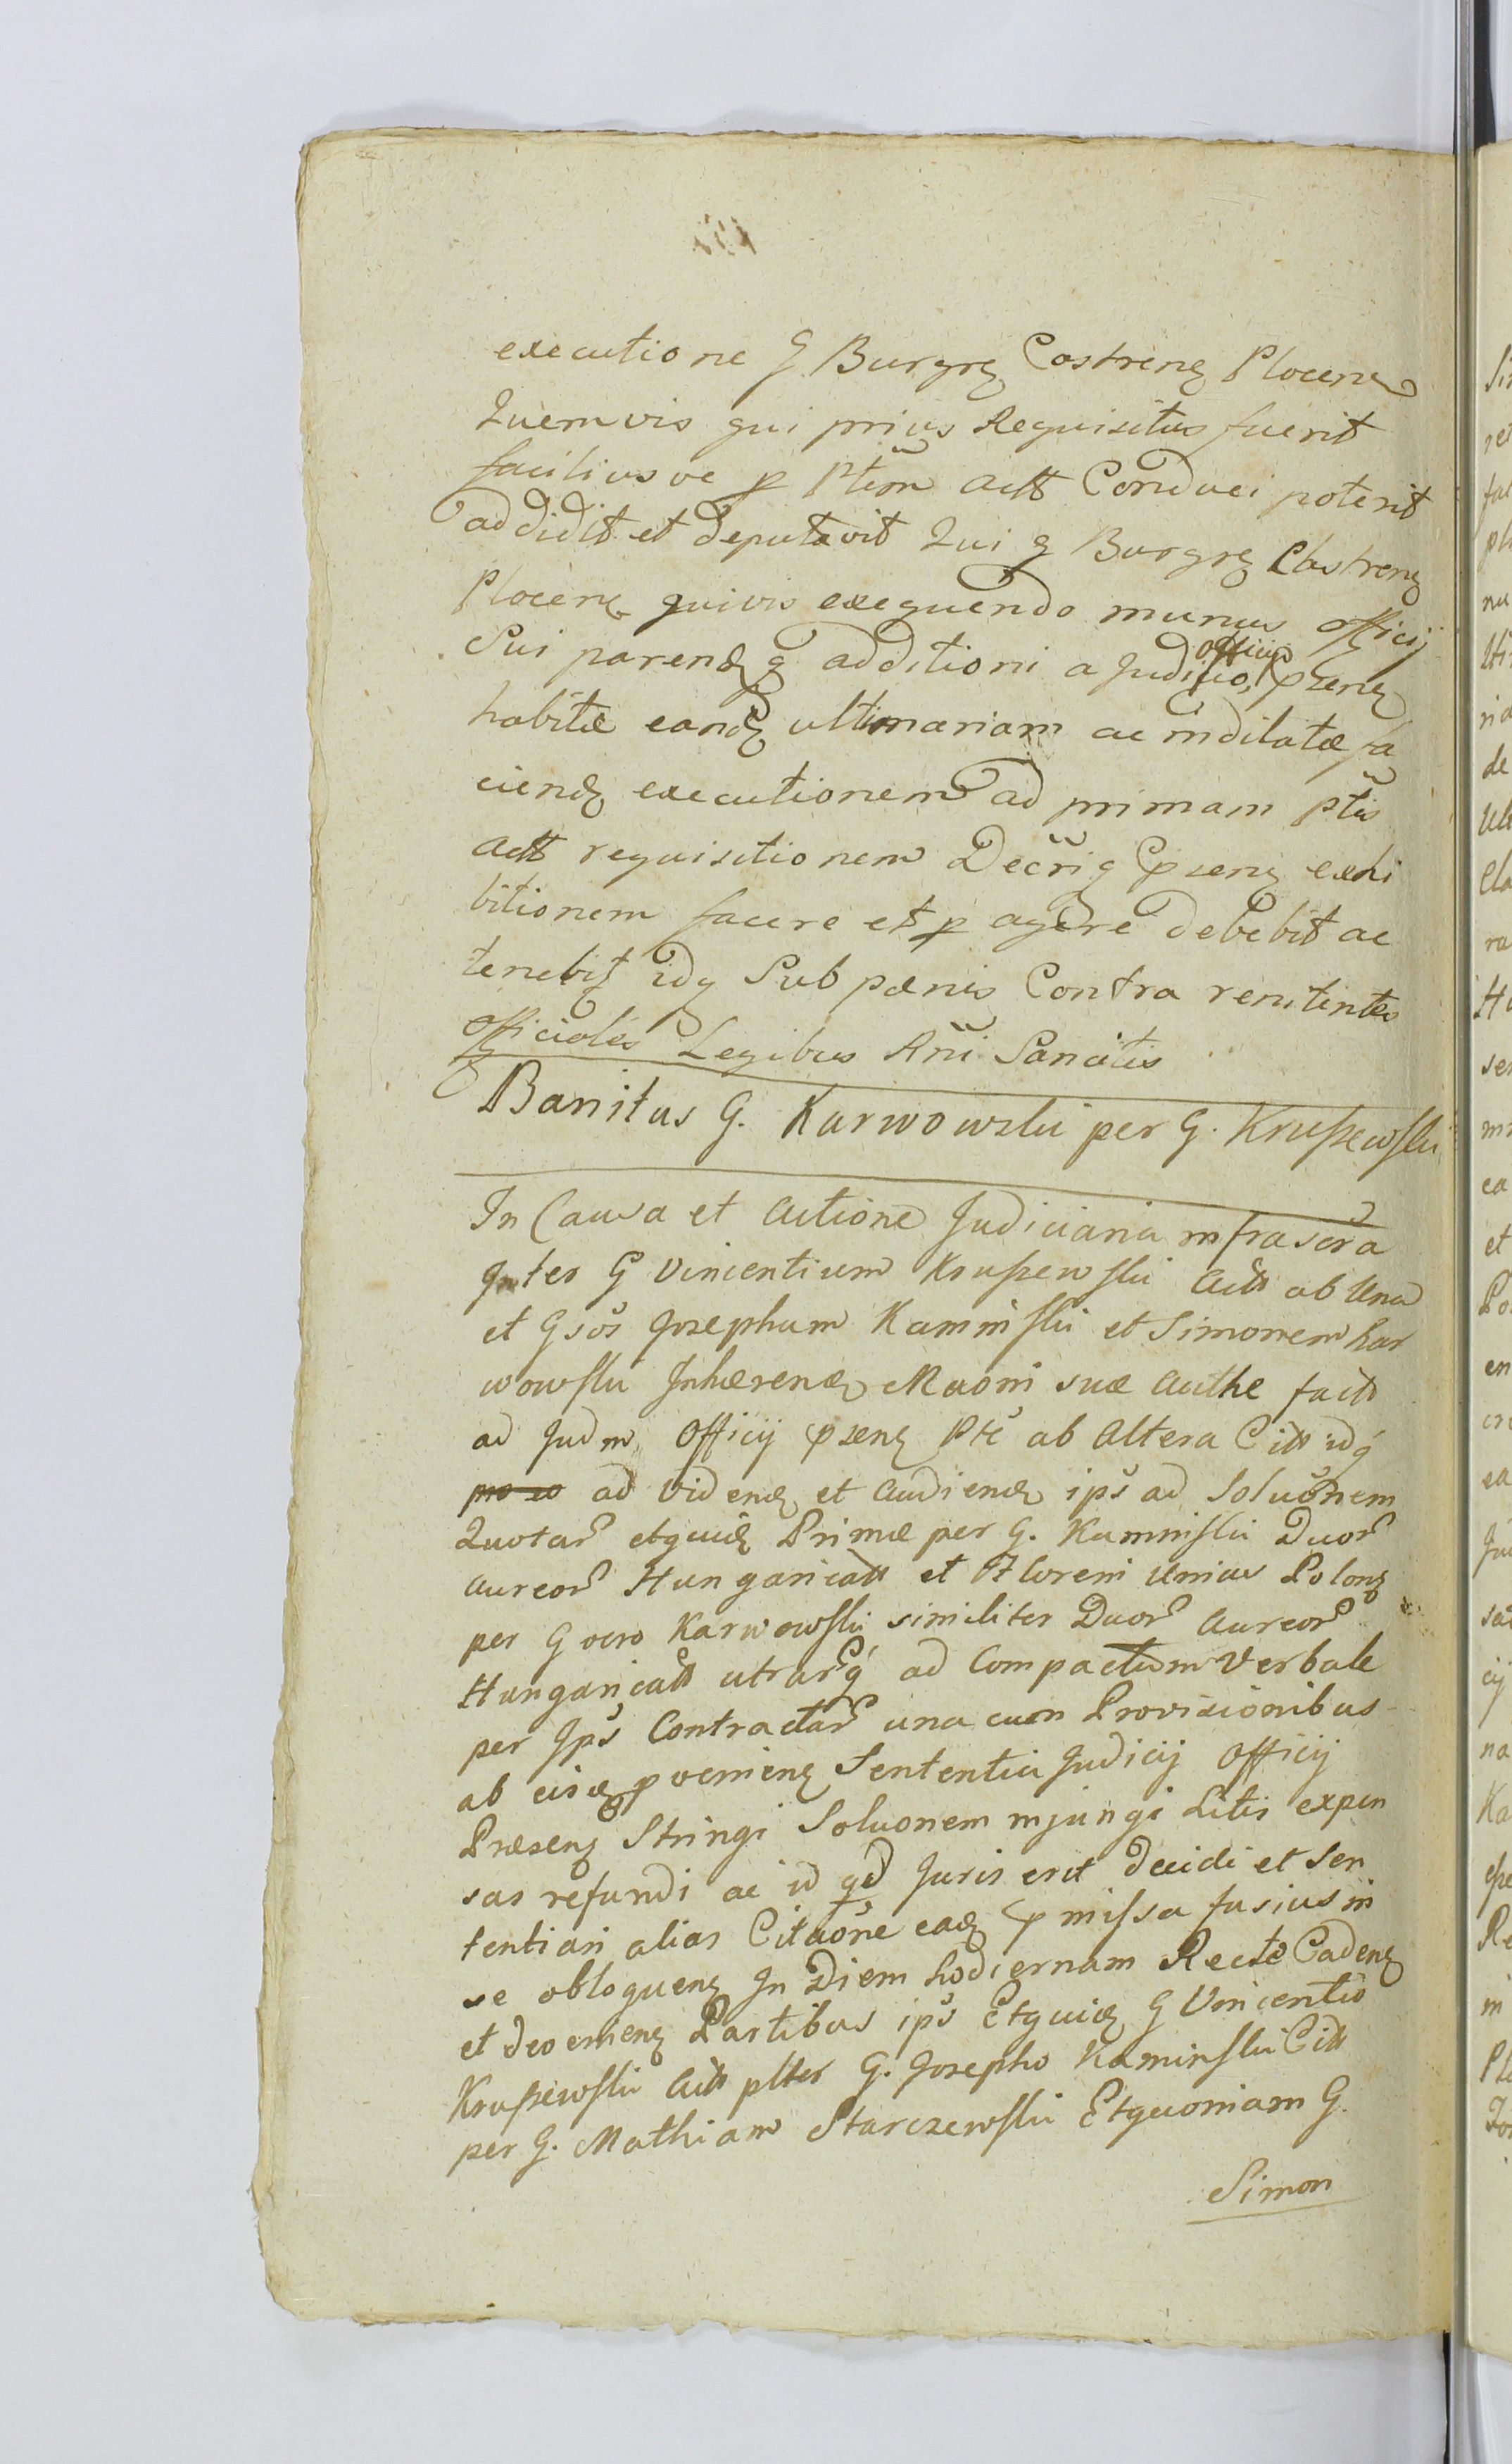 executione G Burgrꝫ Castrenꝫ Plocenꝫ
Quemvis qui prius Requisitus fuerit
faciliusve p Ptem actt Conduci poterit
addidit et deputavit Qui g Burgrꝫ Castrenꝫ
Plocenꝫ quivis exequendo munus officij
Sui parendꝫ g additioni a Judicio, officij pzenꝫ
habitæ eandꝫ ultimariam ac indilatæ fa
ciendꝫ executionem ad primam ptis
actt requisitionem Decri g pzenꝫ exhi
bitionem facere et p agere debebit ac
tenebit idq Sub pænis Contra renitentes
officiales Legibus Rni Sancitis
Banitus G. Karwowski per G. Krußewski
In Causa et Actione Judiciaria infrascra
Inter G Vincentium Krußewski Actt ab Una
et Gsos Josephum Kaminski et Simonem Kar
wowski Inhærendꝫ Maoni suæ Authe factt
ad Judm, Officij pzenꝫ Pte ab Altera Citt idq
ad Videndꝫ et Audiendꝫ ips ad Soluonem
Quotar etquidꝫ Primæ per G. Kaminski Duor
Aureor Hungaricatt et Floreni Unius Polonꝫ
per G vero Karwowski similiter Duor Aureor
Hungaricatt utrarq ad Compactum Verbale
per Ips Contractar una cum Provisionibus
ab eisdꝫ p venienꝫ Sententia Judicij Officij
Præsenꝫ Stringi Soluonem injungi Litis expen
sas refundi ac id qd Juris erit decidi et Sen
tentiari alias Citaone eadꝫ p missa fusius in
se obloquenꝫ In Diem hodiernam Recte Cadenꝫ
et devenienꝫ Partibus ips Etquidꝫ G Vincentio
Krußewski Actt plter G. Josepho Kaminski Citt
per G. Mathiam Starczewski Etquoniam G.
Simon